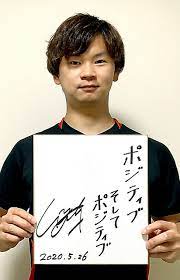 ポジティブ
そして
ポジティブ
2020.5.26